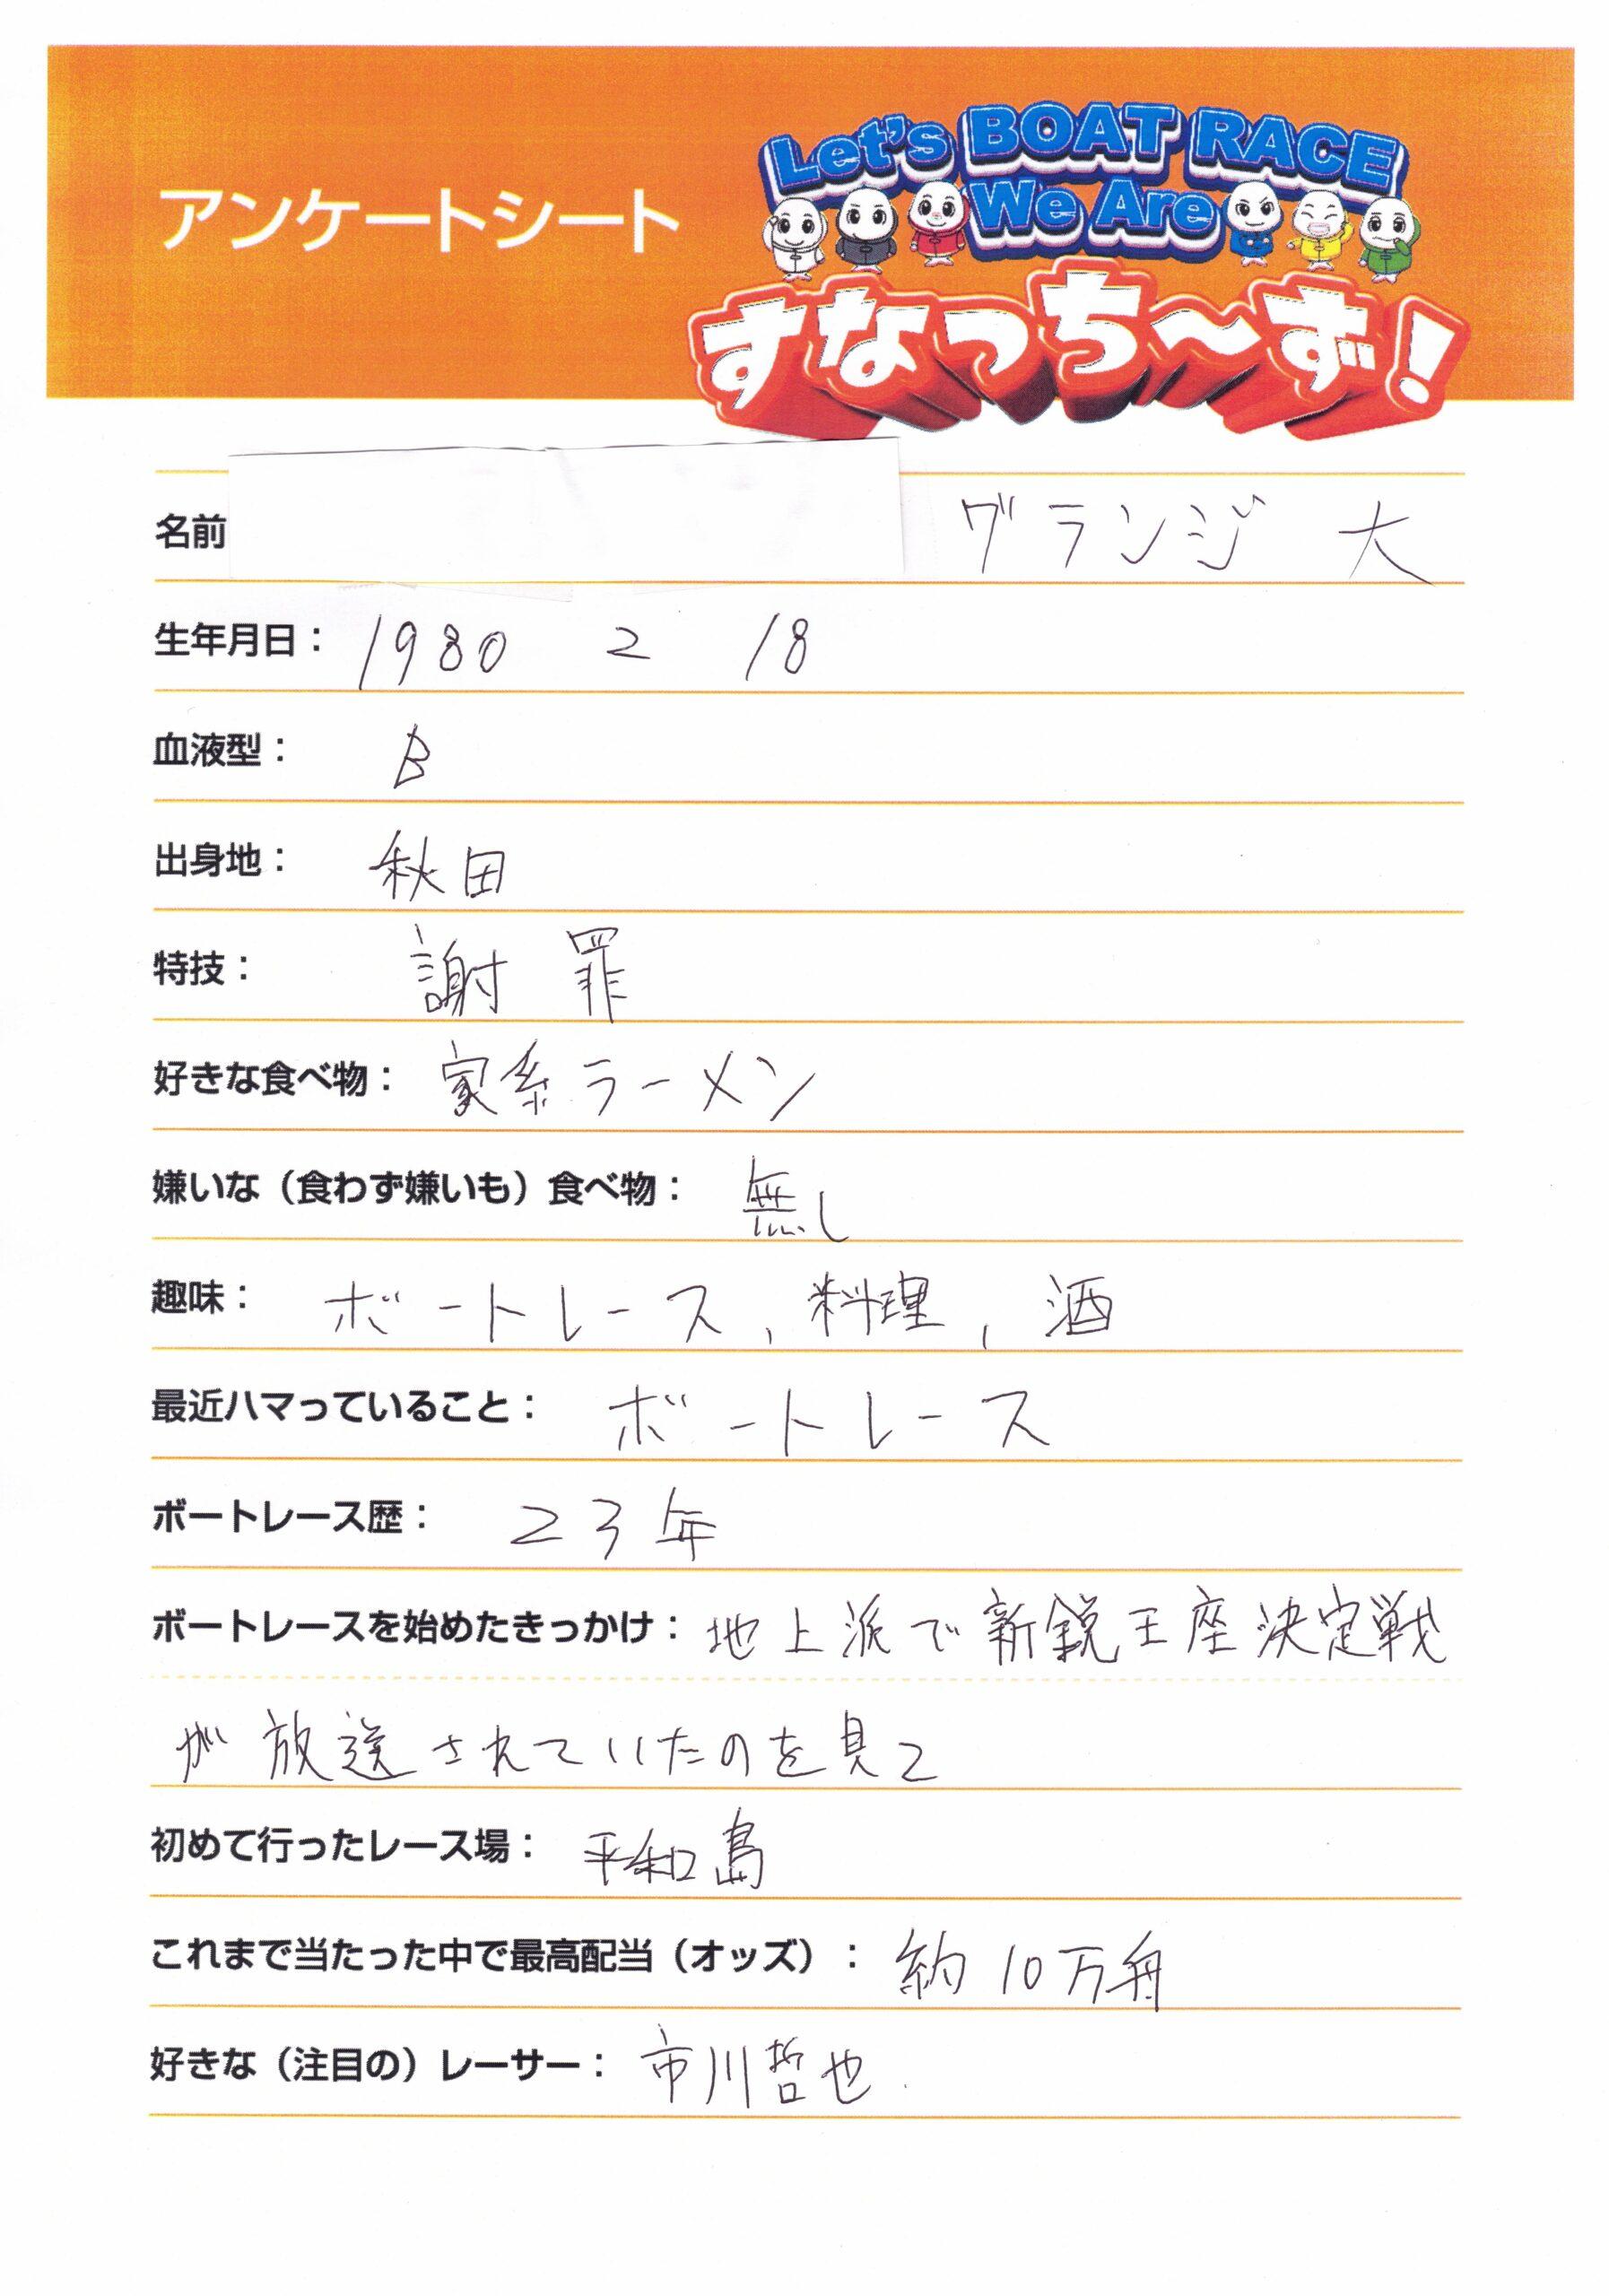 アンケートシート
Let's BOAT RACE
We Are
すなっち〜ず!
名前 グランジ 大
生年月日: 1980 2 18
血液型: B
出身地: 秋田
特技: 謝罪
好きな食べ物: 家系ラーメン
嫌いな(食わず嫌いも)食べ物: 無し
趣味: ボートレース, 料理, 酒
最近ハマっていること: ボートレース
ボートレース歴: 23年
ボートレースを始めたきっかけ: 地上派で新鋭王座決定戦
が放送されていたのを見て
初めて行ったレース場: 平和島
これまで当たった中で最高配当(オッズ): 約10万舟
好きな(注目の)レーサー: 市川哲也